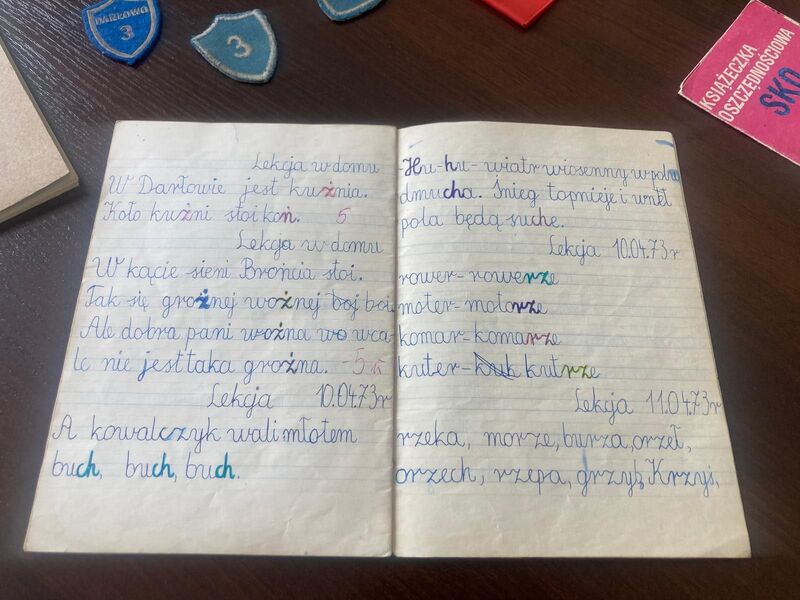 DARŁOWO
3
3
KSIĄŻECZKA
OSZCZĘDNOŚCIOWA
SKO
Lekcja w domu
W Darłowie jest kuźnia.
Koło kuźni stoi koń. 5
Lekcja w domu
W kącie sieni Brońcia stoi.
Tak się groźnej woźnej boj boi
Ale dobra pani woźna wo wca-
le nie jest taka groźna. -5
Lekcja 10.04.73r
A kowalczyk wali młotem
buch, buch, buch.
Hu-hu-wiatr wiosenny w polu
dmucha. Śnieg topnieje i wnet
pola będą suche.
Lekcja 10.04.73r
rower-rowerze
moter-motorze
komar-komarze
kuter-kuk kutrze
Lekcja 11.04.73r
rzeka, morze, burza, orzeł,
orzech, rzepa, grzyb, Krzyś,